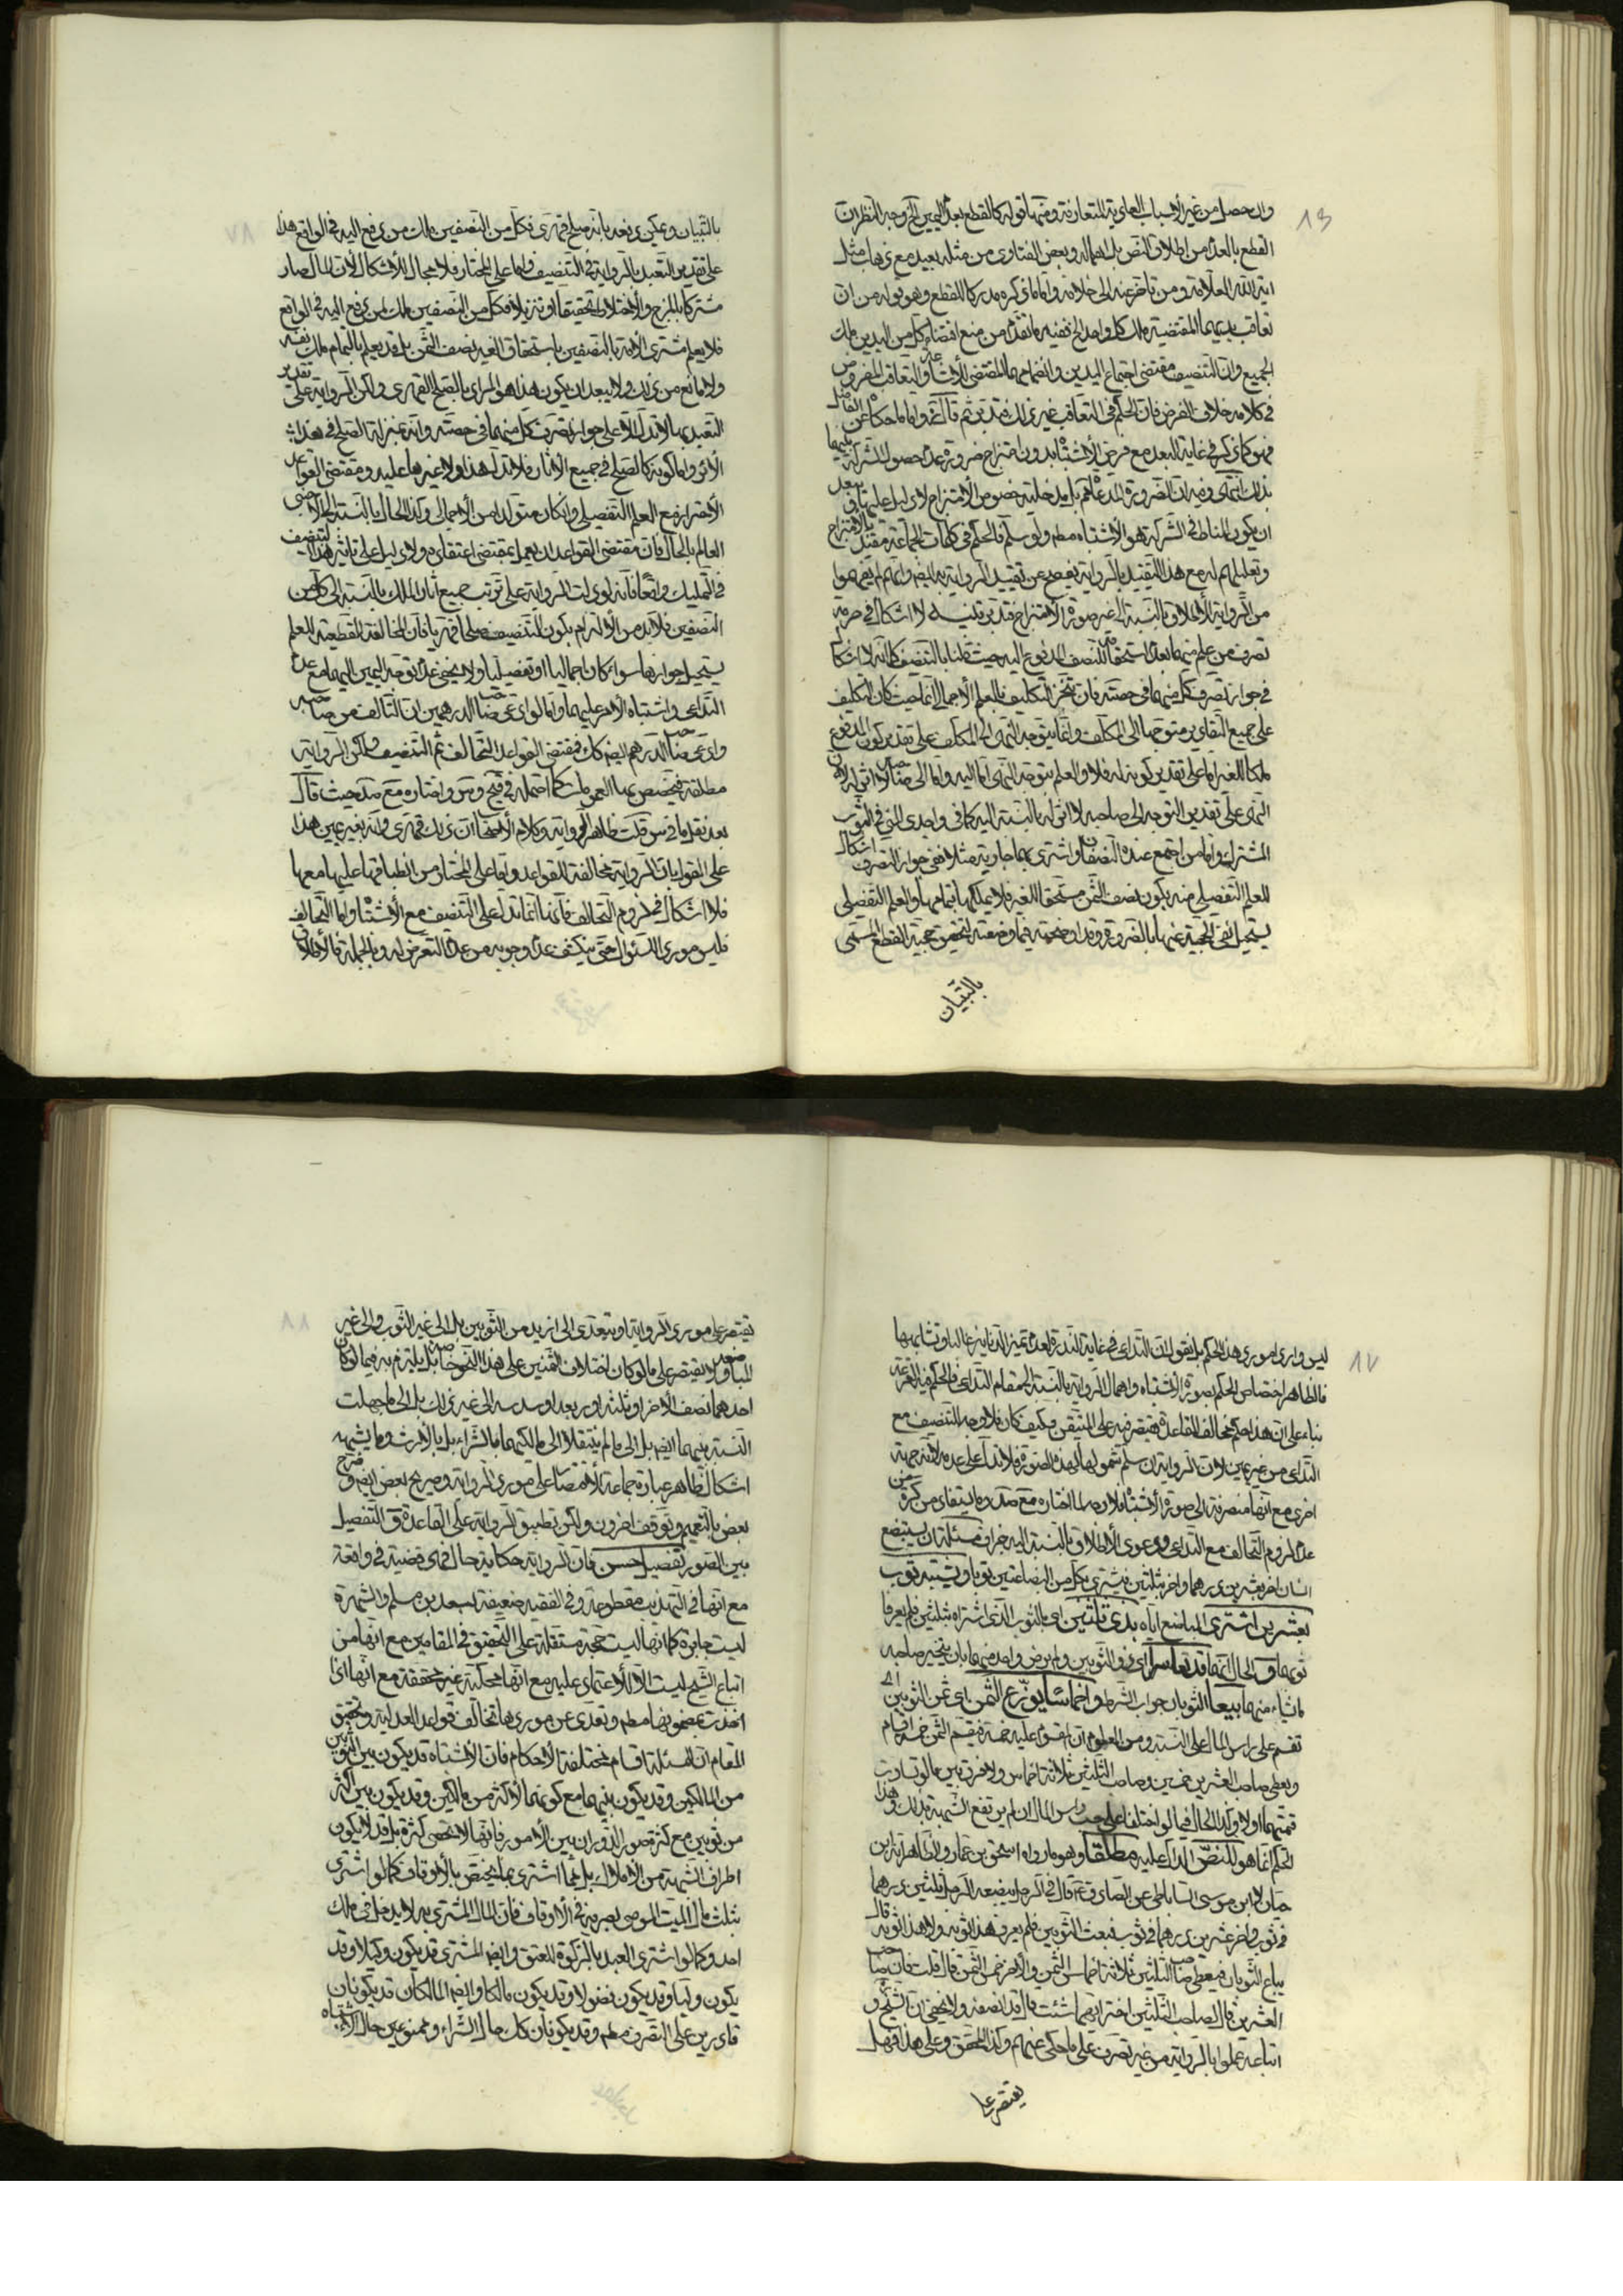 وان حصل من غير الأسباب العادية المتعارفة ومنها قوله كالقطع بعد اليمين لخروجه النظر ان
القطع بالعدم من اطلاق النص بل اهماله وبعض الفتاوى من مثله بعيد مع ذهاب مثل
اية الله العلامة ومن تاخر عنه الى خلافه واما ما ذكره مدركا للقطع وهو قوله من ان
تعاقب يديهما المقتضية ملك كل واحد الخ ففيه ما تقدم من منع اقتضاء كل من اليدين ملك
الجميع وان التنصيف مقتضى اجتماع اليدين وانضمامهما المقتضى للاشاعة والتعاقب المفروض
في كلامه خلاف الفرض فان الحكم في التعاقب غير ذلك فتدبر ثم قال واما ما حكاه عن القائل
فهو كما ذكر في غاية البعد مع فرض الاشتباه بدون امتزاج ضرورة عدم حصول الشركة بينهما
بذلك انتهى وفيه ان الضرورة المدعاة بل مدخلية خصوص الامتزاج لا دليل عليها بعد
ان يكون المناط في الشركة هو الاشتباه مطم ولو سلم فالحكم في كلمات الجماعة مقيد بالامتزاج
وتعليلهم له مع هذا التقييد بالرواية يفصح عن تقييد الرواية به ايضم وانهم لم يفهموا
من الرواية الاطلاق بالنسبة الى غير صورة الامتزاج فتدبر تنبيه لا اشكال في حرمة
تصرف من علم منهما بعدم استحقاقه للنصف المدفوع اليه حيث قلنا بالتنصيف كما انه لا اشكال
في جواز تصرف كل منهما في حصته فان تنجز التكليف بالعلم الاجمالي انما حيث كان التكليف
على جميع التقادير متوجها الى المكلف وانما يتوجه النهى الى المكلف على تقدير كون المدفوع
ملكا للغير اما على تقدير كونه له فلا والعلم بتوجه النهى اما اليه واما الى صاحبه لا اثر له لان
النهى على تقدير التوجه الى صاحبه لا اثر له بالنسبة اليه كما في واجدى المني في الثوب
المشترك واما من اجتمع عنده النصفان واشترى بهما جارية مثلا ففي جواز التصرف اشكال
للعلم التفصيلي منه بكون نصف الثمن مستحقا للغير فلا يملكها بتمامها والعلم التفصيلي
يستحيل نفى الحجية عنها بالضرورة وقد اوضحته فيما وضعته لتحقيق حجية القطع المسمى
بالتبيان
بالتبيان ويمكن دفعه بانه صلح قهرى فكل من النصفين ملك من دفع اليه في الواقع هذا
على تقدير التعبد بالرواية في التنصيف واما على المختار فلا مجال للاشكال لان المال صار
مشتركا بالمزج والاختلاط تحقيقا او تنزيلا فكل من النصفين ملك لمن دفع اليه في الواقع
فلا يعلم مشترى الامة بالنصفين باستحقاق الغير نصف الثمن بل قد يعلم بالتمام ملك نفسه
ولا مانع من ذلك ولا يبعد ان يكون هذا هو المراد بالصلح القهرى ولكن الرواية على تقدير
التعبد بها لا تدل الا على جواز تصرف كل منهما في حصته وانه بمنزلة الصلح في هذا
الاثر واما كونه كالصلح في جميع الاثار فلا تدل هذا ولا غيرها عليه ومقتضى القواعد
الاحتراز مع العلم التفصيلي وان كان متولدا من الاجمالى وكذا الحال بالنسبة الى الاجنبى
العالم بالحال فان مقتضى القواعد ان يعمل بمقتضى اعتقاده ولا دليل على تاثير هذا التنصيف
في التمليك واقعا فانه لو دلت الرواية على ترتب جميع اثار الملك بالنسبة الى كل من
النصفين فلابد من الالتزام بكون التنصيف صلحا قهريا فان المخالفة القطعية للعلم
يستحيل جوازها سواء كان اجماليا او تفصيليا ولا يخفى عدم توجه اليمين اليهما مع عدم
التداعى واشتباه الامر عليهما واما لو ادعى صاحب الدرهمين ان التالف من صاحبه
وادعى صاحب الدرهم ايضم كك فمقتضى القواعد التحالف ثم التنصيف ولكن الرواية
مطلقة فيخصص بها العمومات كما احتمله في فتح وس واختاره مع ضد حيث قال
بعد نقل ما في س قلت ظاهر الرواية وكلام الاصحاب ان ذلك قهرى وانه بغير يمين هذا
على القول بان الرواية مخالفة للقواعد واما على المختار من انطباقها عليها معها
فلا اشكال في لزوم التحالف فانها انما تدل على التنصيف مع الاشتباه واما التحالف
فليس مورد السئوال حتى ينكشف عدم وجوبه من عدم التعرض له وبالجملة فالاطلاق
ليس واردا مورد هذا الحكم بل يقول ان التداعى في غاية الندرة لعدم تميز الدنانير غالبا وتشابهها
فالظاهر اختصاص الحكم بصورة الاشتباه واهمال الرواية بالنسبة الى مقام التداعى فالحكم فيه القرعة
بناء على ان هذا حكم مخالف للقاعدة فيقتصر فيه على المتيقن وكيف كان فلا وجه للتنصيف مع
التداعى من غير يمين لان الرواية ان سلم شمولها لهذه الصورة فلا تدل على عدمه لانه جهة
اخرى مع انها منصرفة الى صورة الاشتباه فلا وجه لما اختاره مع ضد وما يستفاد من كثير من
عدم لزوم التحالف مع التداعى ودعوى الاطلاق بالنسبة اليه جزاف مسئلة ان يستبضع
انسان اخر بعشرين درهما واخر بثلثين فيشترى بكل من البضاعتين ثوبا ويشتبه ثوب
بعشرين اشترى المباضع اياه بدى ثلثين اى بالثوب الذى اشتراه بثلثين فلم يعرفا
ثوبهما والحال انهما قد تعاسرا اى في الثوبين ولم يرض واحد منهما بان يتخير صاحبه
ما شاء منهما بيعا الثوبان جواب الشرط واخماسا يوزع الثمن اى ثمن الثوبين اى
تقسم على راس المال على النسبة ومن المعلوم ان المقسوم عليه خمسة فيقسم الثمن خمسة اقسام
ويعطى صاحب العشرين خمسين وصاحب الثلثين ثلاثة اخماس ولا فرق بين ما لو تساوت
قيمتهما او لا وكذا الحال فيما لو اختلفا على حسب راس المال ان لم يرتفع الشبهة بذلك وهذا
الحكم انما هو للنص الدال عليه مطلقا وهو ما رواه اسحق بن عمار والظاهر انه ابن
حيان لا ابن موسى الساباطى عن الصادق ع قال في الرجل يبضعه الرجل ثلثين درهما
في ثوب واخر عشرين درهما في ثوب فبعث الثوبين فلم يعرف هذا ثوبه ولا هذا ثوبه قال
يباع الثوبان فيعطى صاحب الثلثين ثلاثة اخماس الثمن والاخر خمسى الثمن قال قلت فان صاحب
العشرين قال لصاحب الثلثين اختر ايهما شئت قال قد انصفه ولا يخفى ان الشيخ و
اتباعه عملوا بالرواية من غير تصرف على ما حكى عنهم وكذا المحقق وعلى هذا فهل
يقتصر على
يقتصر على مورد الرواية او يتعدى الى ازيد من الثوبين بل الى غير الثوب والى غير
المباضعين ويقتصر على ما لو كان اختلاف الثمنين على هذا النحو خاصة بل يلتزم به فيما لو كان
احدهما نصف الاخر او ثلثه او ربعه او سدسه الى غير ذلك بل الى ما جهلت
النسبة بينهما ايضم بل الى ما لم ينتقلا الى مالكيهما بالشراء بل بالارث وما يشبهه
اشكال ظاهر عبارة جماعة الاقتصار على مورد الرواية وصريح بعض ايضم وصرح
بعض بالتعميم وتوقف اخرون ولكن تطبيق الرواية على القاعدة في التفصيل
بين الصور تفصيل حسن فان الرواية حكاية حال فهى قضية في واقعة
مع انها في التهذيب مقطوعة وفي الفقيه ضعيفة لسعد بن مسلم والشهرة
ليست جابرة كما انها ليست حجة مستقلة على التحقيق في المقامين مع انها من
اتباع الشيخ ليست الا للاعتماد عليه مع انها محكية غير محققة مع انها اذا
اخذت بمضمونها مطم وتعدى عن موردها تخالف قواعد العدلية وتحقيق
المقام ان للمسئلة اقسام مختلفة الاحكام فان الاشتباه قد يكون بين الثوبين
من المالكين وقد يكون بينهما مع كونهما لاكثر من مالكين وقد يكون بين اكثر
من ثوبين مع كثرة صور الدوران بين الامور فانها لا تحصى كثرة بل قد لا يكون
اطراف الشبهة من الاملاك بل مما اشترى بما يختص بالاوقاف كما لو اشترى
بثلث مال الميت الموصى بصرفه في الاوقاف فان المال المشترى به لا يدخل في ملك
احد وكما لو اشترى العبد بالزكوة للعتق وايضم المشترى قد يكون وكيلا وقد
يكون وليا وقد يكون فضولا وقد يكون مالكا وايضم المالكان قد يكونان
قادرين على التصرف مطم وقد يكونان كك حال الشراء وممنوعين حال الاشتباه